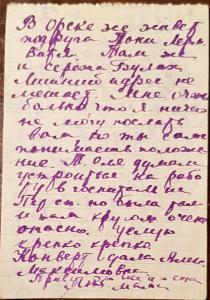 В Орске же живет
подруга Тони Мерк.
Валя. Там же
и Сережа Булах
Лишний адрес не
мешает. Мне очень
больно что я ничего
не могу послать
вам но ты сам
понимаешь положе
ние. Я еле думаю
устроиться на рабо
ту в госпитале
но была там
и там кругом очень
опасно. Целую
крепко крепко.
Конверт дала Алек
Максимовна.
Привет
мама